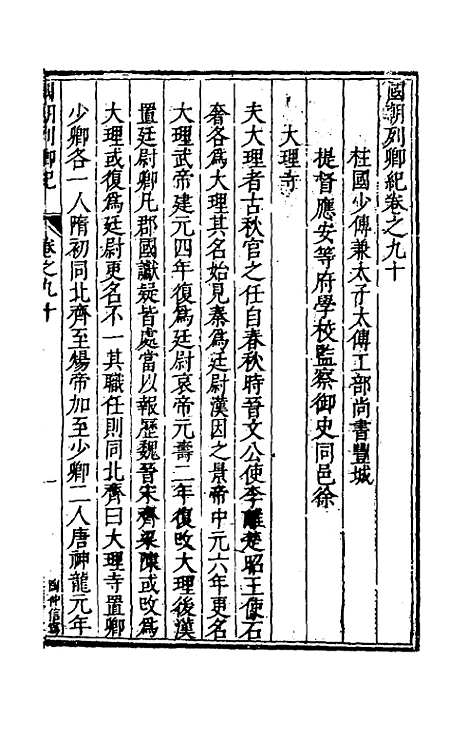 國朝列卿紀卷之九十
柱國少傅兼太子太傅工部尚書豐城
提督應安等府學校監察御史同邑徐
大理寺
夫大理者古秋官之任自春秋時晉文公使李離楚昭王使石
奢各爲大理其名始見秦爲廷尉漢因之景帝中元六年更名
大理武帝建元四年復爲廷尉哀帝元壽二年復改大理後漢
置廷尉卿凡郡國讞疑皆處當以報歷魏晉宋齊梁陳或改爲
大理或復爲廷尉更名不一其職任則同北齊曰大理寺置卿
少卿各一人隋初同北齊至煬帝加至少卿二人唐神龍元年
國朝列卿紀
卷之九十
一